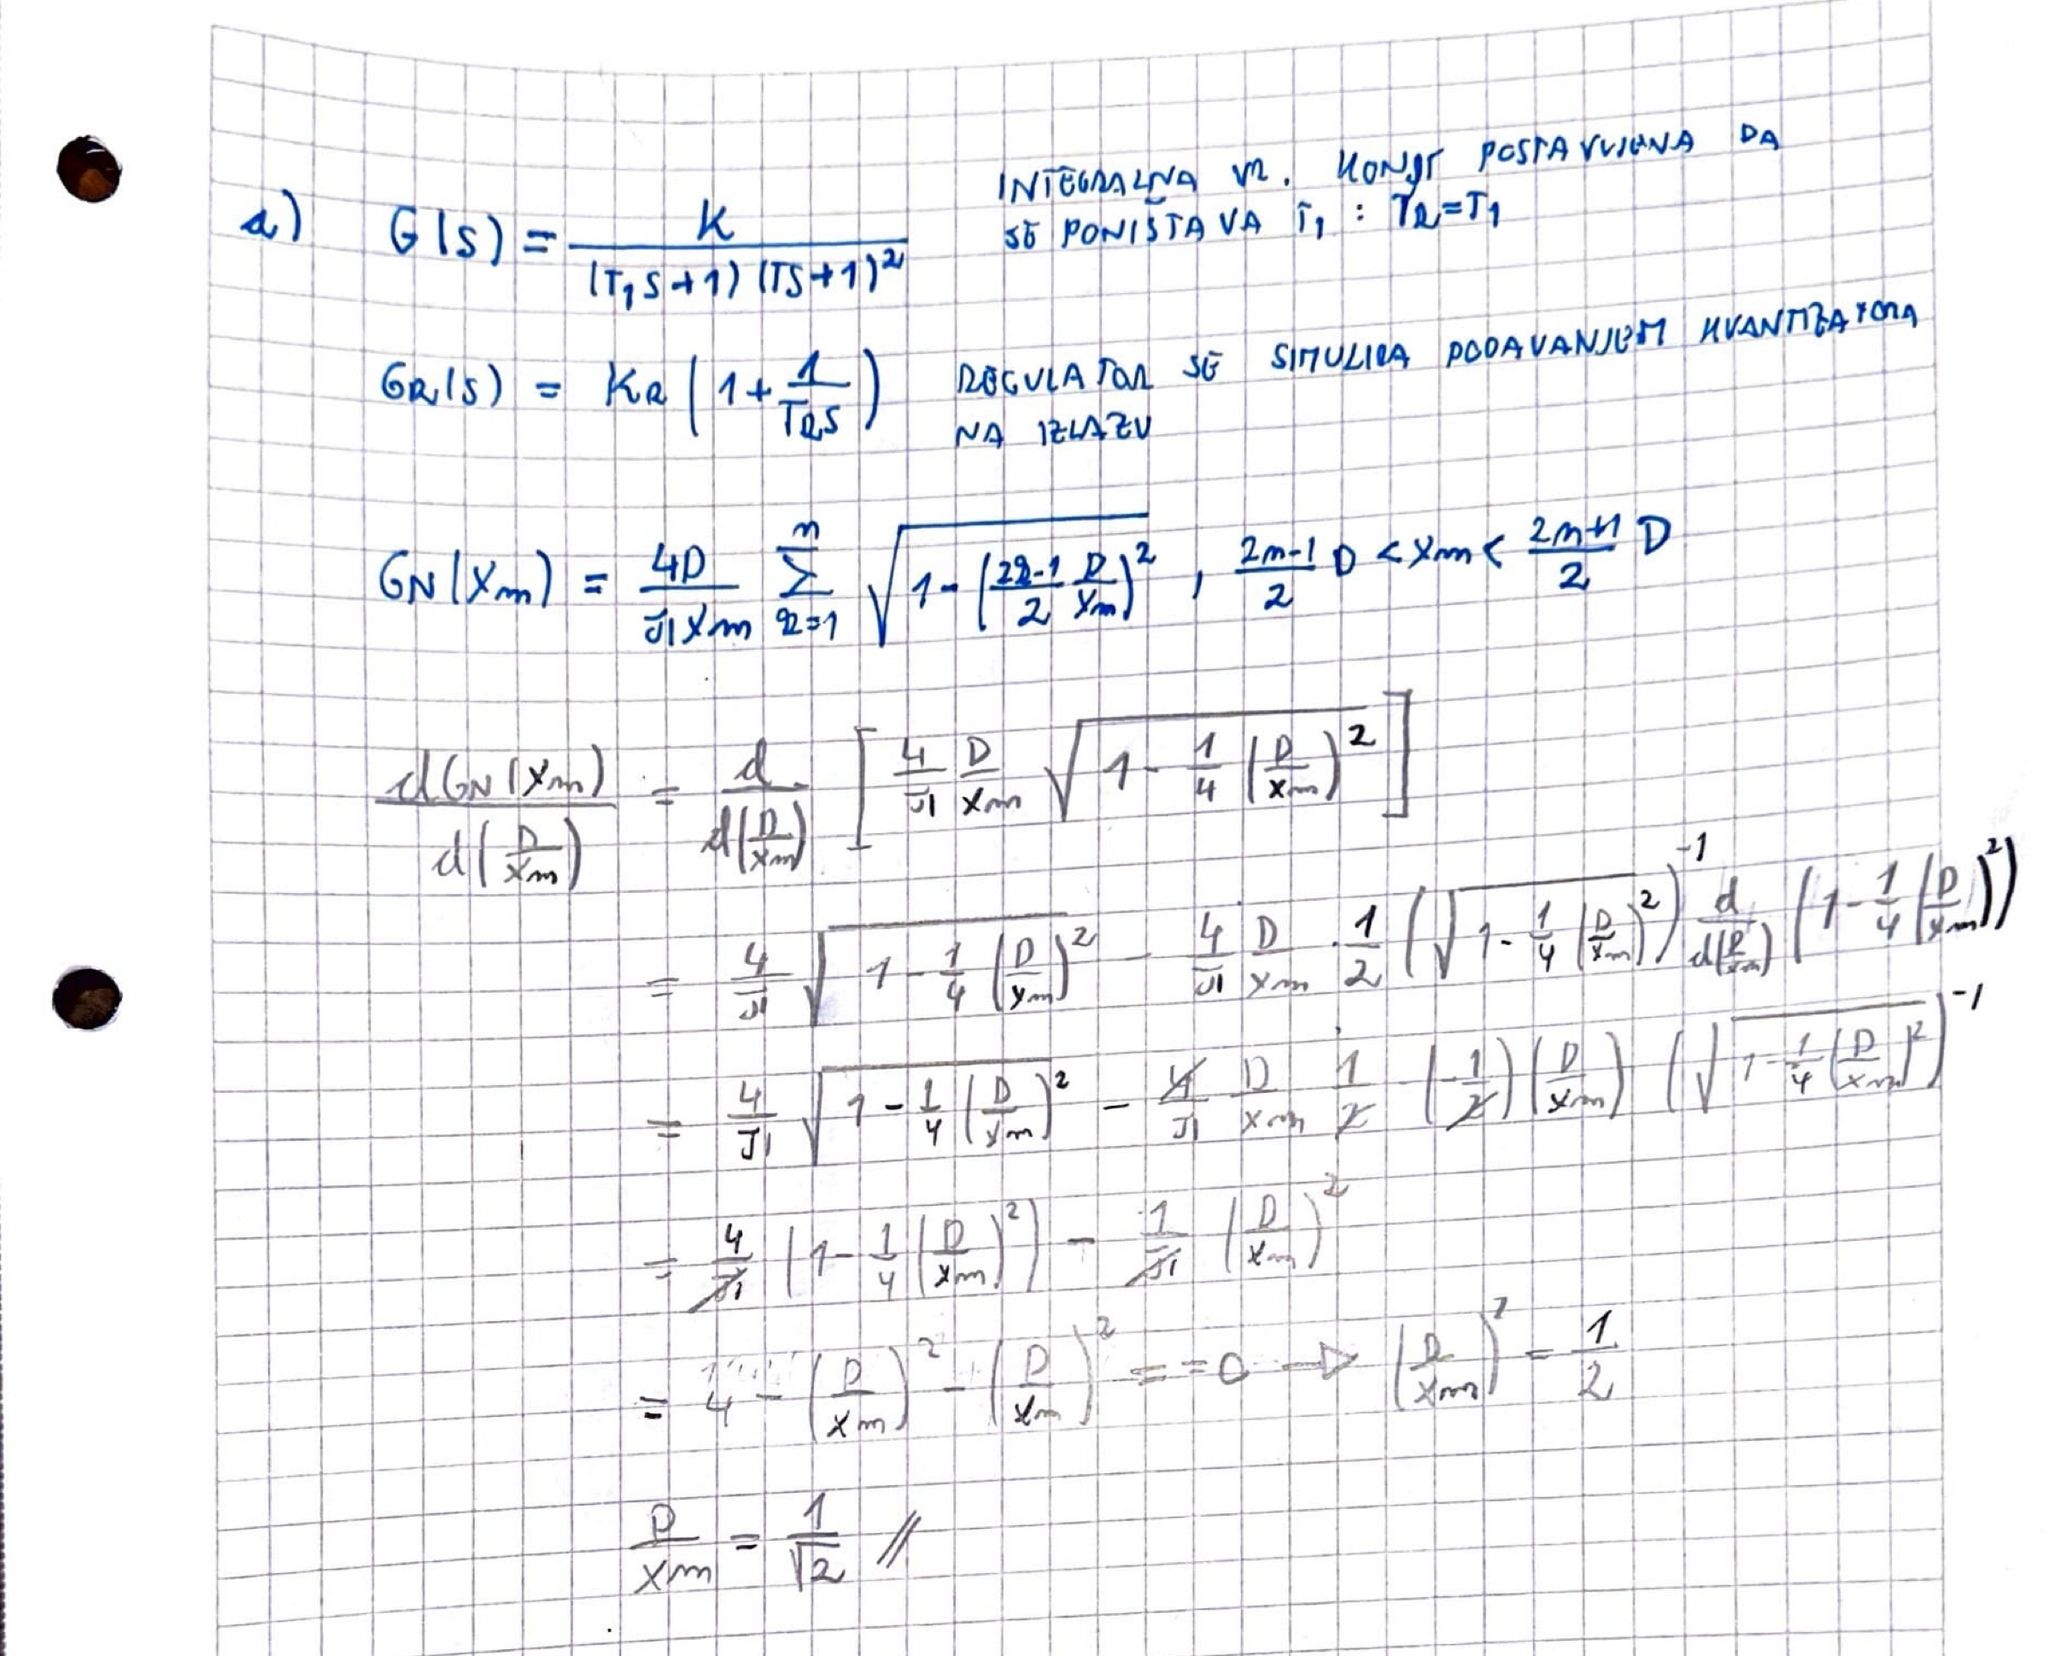 a) G(s) = K / ((T₁s+1)(Ts+1)²)
INTEGRALNA VR. KONST POSTAVLJENA DA
SE PONIŠTAVA T₁ : T_R=T₁
G_R(s) = K_R (1 + 1/(T_R s))
REGULATOR SE SIMULIRA DODAVANJEM KVANTIZATORA
NA IZLAZU
G_N(X_m) = 4D/(πX_m) Σ_{k=1}^{n} √(1-((2k-1)/2 D/X_m)²) , (2n-1)/2 D < X_m < (2n+1)/2 D
dG_N(X_m)/d(D/X_m) = d/d(D/X_m) [4/π D/X_m √(1-1/4 (D/X_m)²)]
= 4/π √(1-1/4 (D/X_m)²) - 4/π D/X_m · 1/2 (√(1-1/4 (D/X_m)²))⁻¹ d/d(D/X_m) (1-1/4 (D/X_m)²)
= 4/π √(1-1/4 (D/X_m)²) - 4/π D/X_m 1/2 (-1/2)(D/X_m) (√(1-1/4 (D/X_m)²))⁻¹
= 4/π (1-1/4 (D/X_m)²) - 1/π (D/X_m)²
= 4 - (D/X_m)² - (D/X_m)² = = 0 → (D/X_m)² = 1/2
D/X_m = 1/√2 //